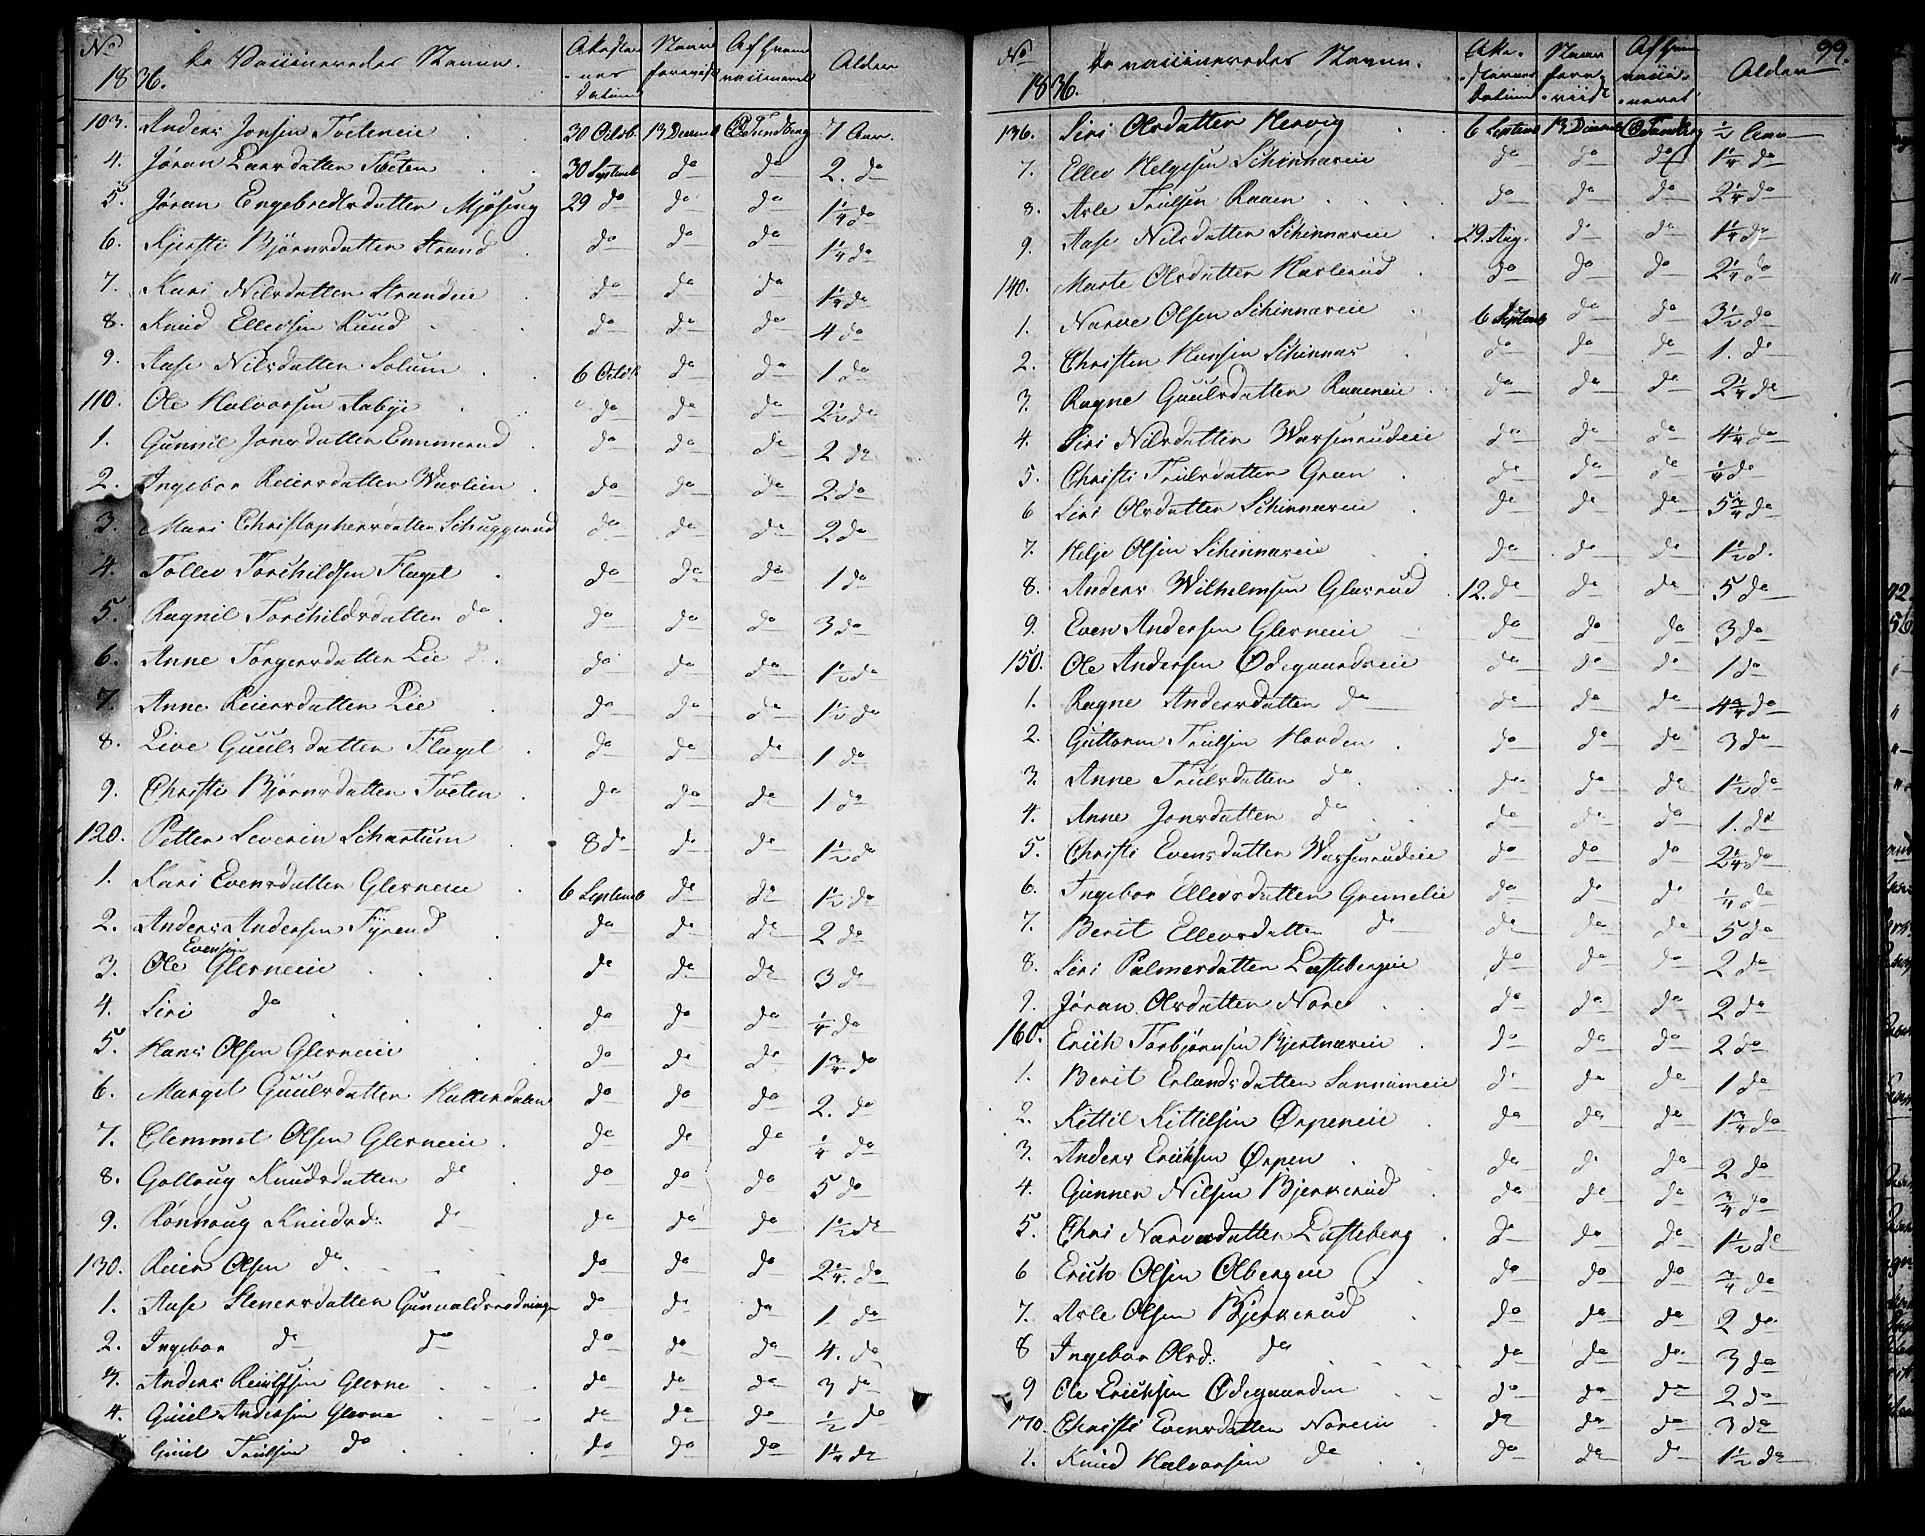 No 1836. De Vaccineredes Navne. Attesternes Datum Naar forevist Af hvem vaccineret Alder
103. Anders Jonsen Tveteneie 30 Octob. 13 Decemb. C. Tandberg 7 Aar.
4. Jøran Larsdatten Tveten 30 Septemb do do 2. do
5. Jøran Engebredtsdatten Mjøseng 29 do do do 1¼ do
6. Kjersti Björnsdatten Strand do do do 1¼ do
7. Kari Nilsdatten Strandeie do do do 1¼ do
8. Knud Ellevsen Ruud do do do 4 do
9. Aase Nilsdatten Solum 6 Octob. do do 1 do
110. Ole Halvorsen Aabye do do do 2½ do
1. Gunnil Jonsdatten Emmerud do do do 2 do
2. Ingebor Reiersdatten Warlien do do do 2 do
3. Mari Christophersdatten Schuggerud do do do 2 do
4. Tollev Torchildsen Flagel do do do 1 do
5. Ragnil Torchildsdatten do do do do 3 do
6. Anne Torgersdatten Lie do do do 1½ do
7. Anne Reiersdatten Lie do do do 1½ do
8. Live Guulsdatten Flagel do do do 1 do
9. Christi Björnsdatten Tveten do do do 1 do
120. Petter Severin Schartum 8 do do do 1½ do
1. Kari Evensdatten Glerneie 6 Septemb do do 1½ do
2. Anders Andersen Fyrend do do do 2 do
3. Ole Evensen Glerneie do do do 3 do
4. Siri do do do do ¼ do
5. Hans Olsen Glerneie do do do 1¾ do
6. Margit Guulsdatten Hallerdalen do do do 2. do
7. Clemmet Olsen Glerneie do do do ¼ do
8. Golloug Knudsdatten do do do do 5 do
9. Rönnoug Knudsd: do do do do 1½ do
130. Reier Olsen do do do do 2¼. do
1. Aase Stenersdatten Gunvaldsrodninge do do do 1 do
2. Ingebor do do do do do 4. do
3. Anders Reiersen Glerne do do do 3 do
4. Guul Andersen Glerne do do do ½ do
Guul Trulsen do do do do 1¼ do
99.
No 1836. De vaccineredes Navne. Attesternes Datum Naar forevist Af hvem vaccineret Alder
136. Siri Olsdatten Hervig 6 Septemb 13 Decemb C Tandberg ½ Aar
7. Ellev Helgesen Schinnareie do do do 1¼ do
8. Asle Trulsen Raaen do do do 2¼ do
9. Aase Nilsdatten Schinnareie 29. Aug. do do 1¼ do
140. Marte Olsdatten Haslerud do do do 2¼ do
1. Narve Olsen Schinnareie 6 Septemb do do 3½ do
2. Christen Hansen Schinnar do do do 1. do
3. Ragne Guulsdatten Raaeneie do do do 2¼ do
4. Siri Nilsdatten Warsenrudeie do do do 4¼ do
5. Christi Trulsdatten Grøn do do do ¼ do
6 Siri Olsdatten Schinnareie do do do 5¾ do
7. Helje Olsen Schinnareie do do do 1½ d.
8. Anders Wilhelmsen Glasrud 12. do do do 5 do
9. Even Andersen Glerneie do do do 3 do
150. Ole Andersen Ødegaardseie do do do 1 do
1. Ragne Andersdatten do do do do 4¾ do
2. Guttorm Trulsen Horden do do do 3 do
3. Anne Trulsdatten do do do do 1½ do
4. Anne Jonsdatten do do do do 1. do
5. Christi Evensdatten Warsenrudeie do do do 2¼ do
6. Ingebor Ellevsdatten Gremelie do do do ¼ do
7. Berit Ellevsdatten do do do do 5 do
8. Siri Palmersdatten Lofsbergeie do do do 2 do
9. Jøran Olsdatten Nore do do do 2 do
160. Erich Torbjørnsen Bjertnæseie do do do 2 do
1. Berit Erlandsdatten Sannæmeie do do do 1 do
2. Kittil Kittilsen Ørpeneie do do do 1¾ do
3. Anders Ericksen Ørpen do do do 2 do
4. Gunner Nilsen Bjerkerud do do do ¾ do
5. Chri Narvesdatten Lofteberg do do do 1½ do
6 Erich Olsen Olbergeie do do do ¾ do
7. Asle Olsen Bjerkerud do do do 2 do
8 Ingebor Olsd: do do do do 3 do
9 Ole Ericksen Ødegaarden do do do 2 do
170. Christi Evensdatten Noreie do do do 3 do
1. Knud Halvorsen do do do do 1½ do